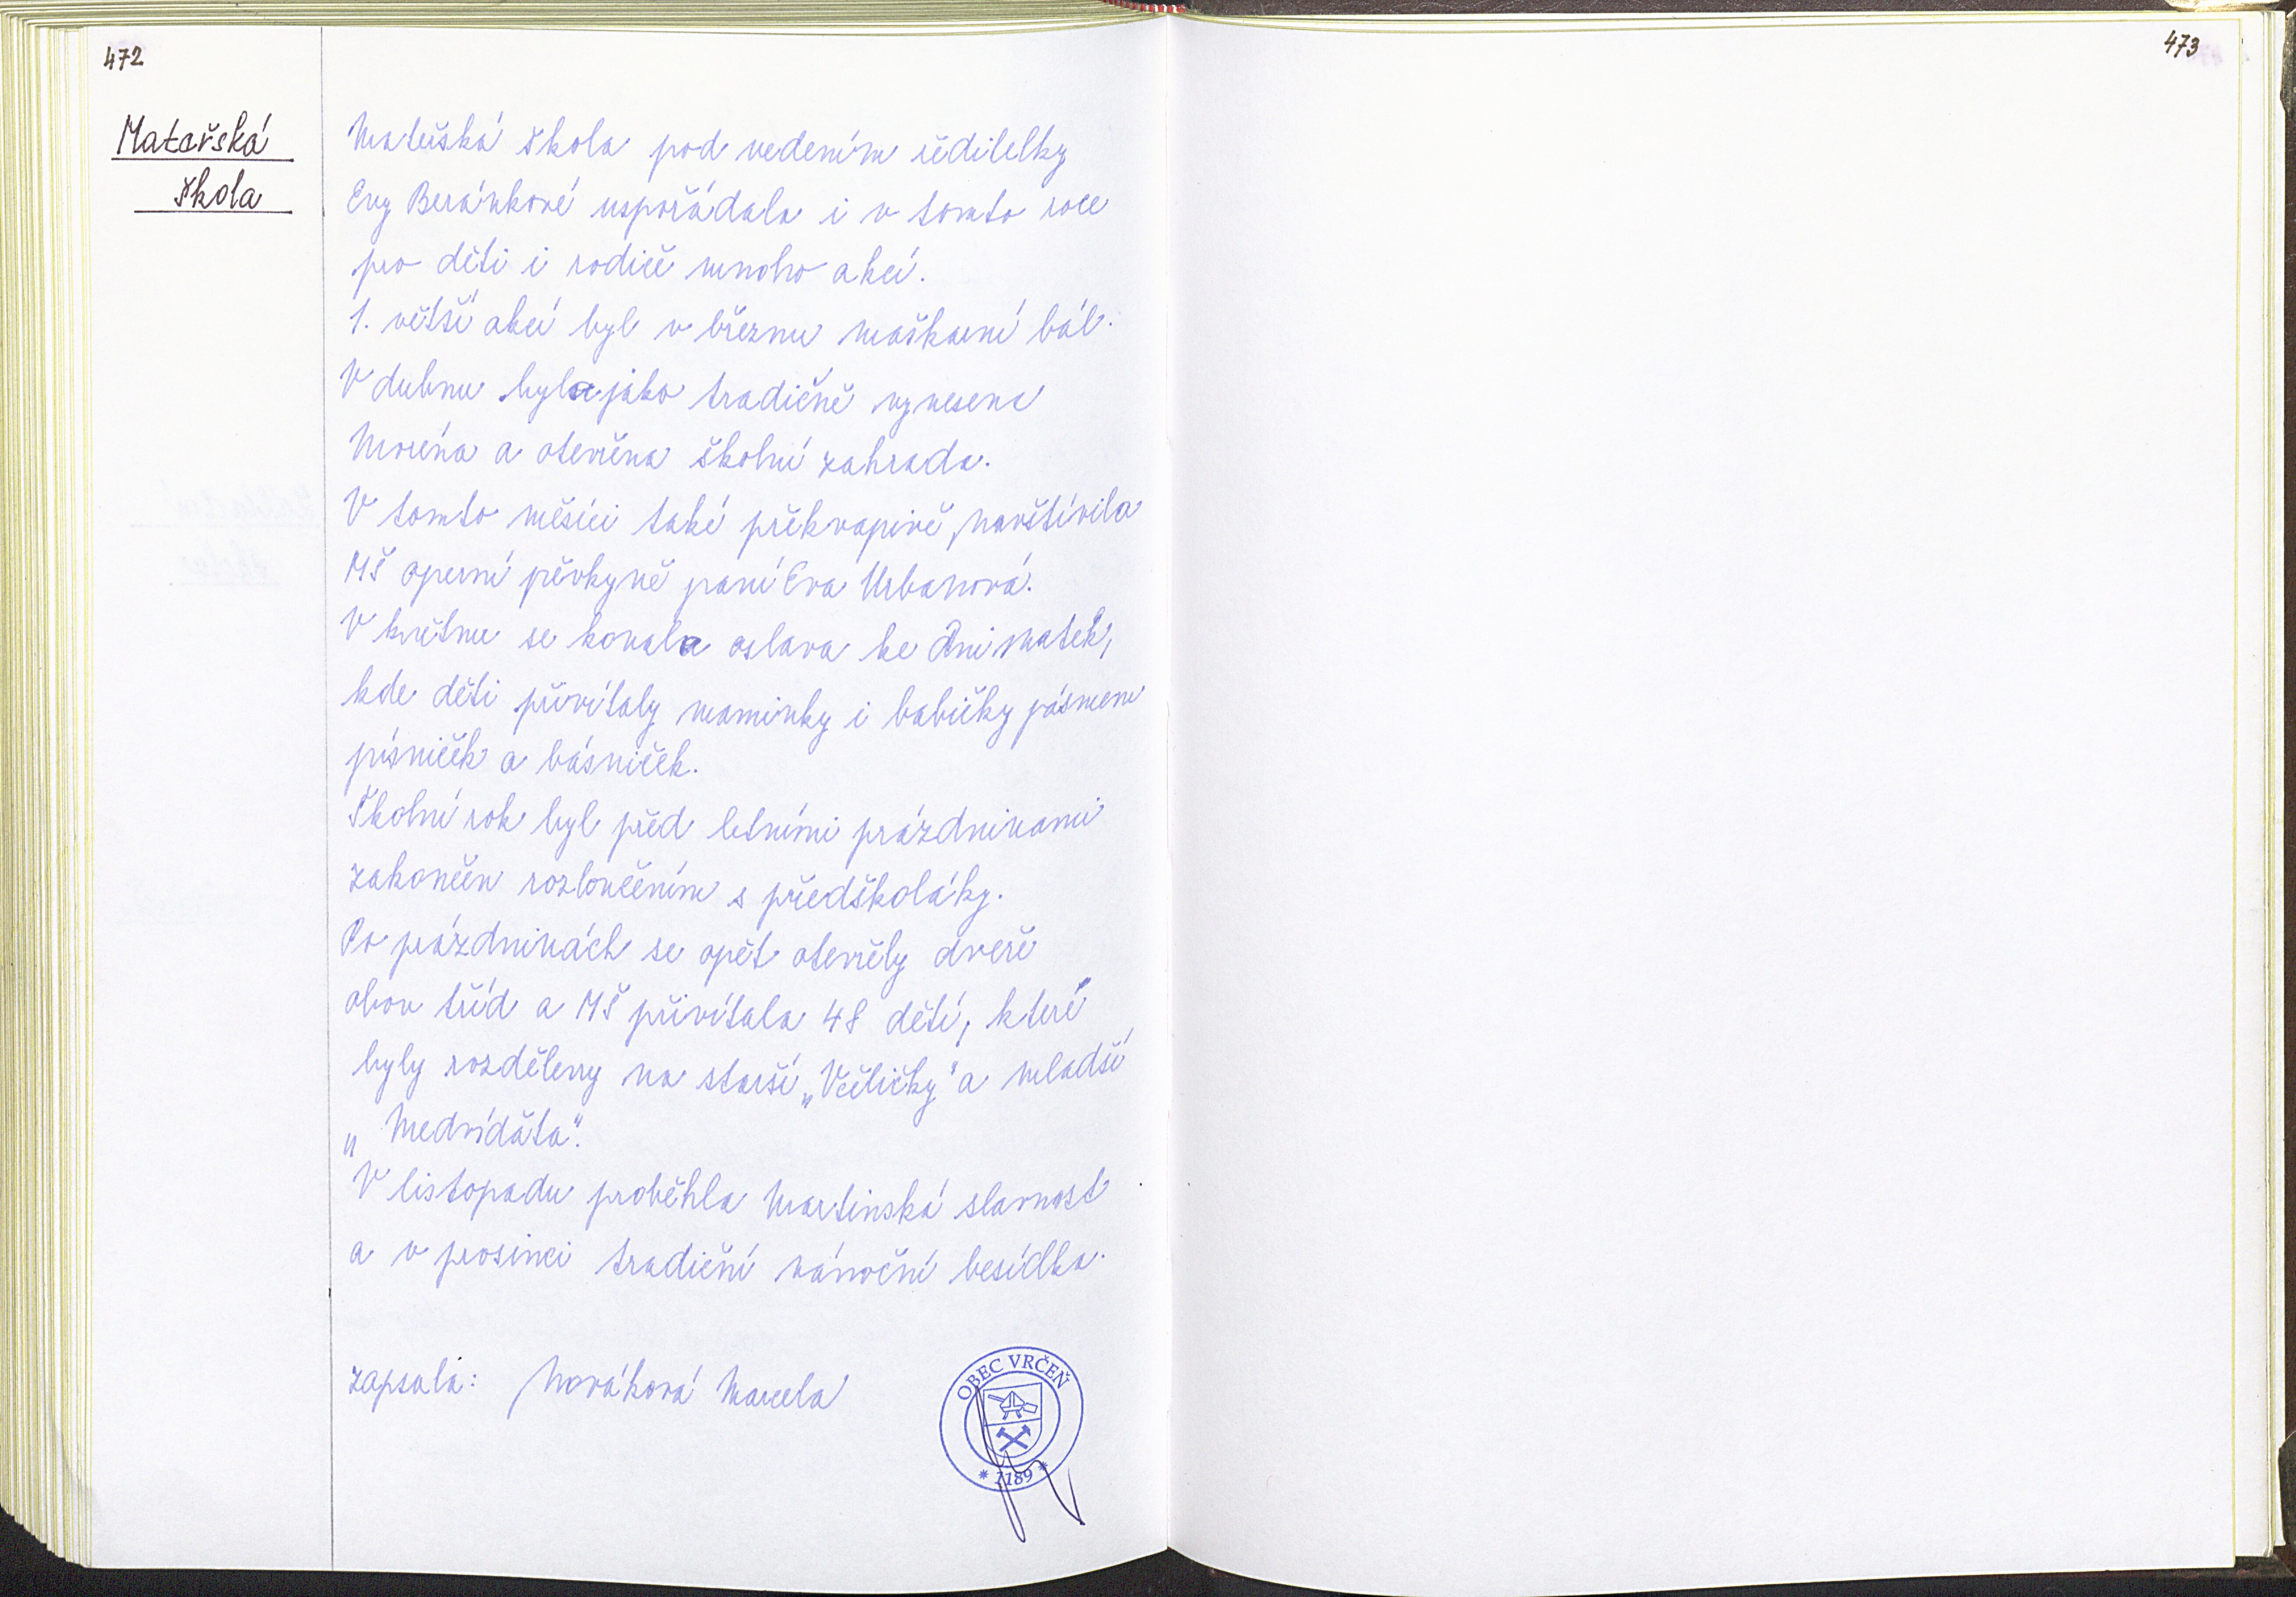 472
473
Mateřská
škola
Mateřská škola pod vedením ředitelky
Evy Beránkové uspořádala i v tomto roce
pro děti i rodiče mnoho akcí.
1. větší akcí byl v březnu maškarní bál.
V dubnu byla jako tradičně vynesena
Moréna a otevřena školní zahrada.
V tomto měsíci také překvapivě navštívila
MŠ operní pěvkyně paní Eva Urbanová.
V květnu se konala oslava ke Dni matek,
kde děti přivítaly maminky i babičky pásmem
písniček a básniček.
Školní rok byl před letními prázdninami
zakončen rozloučením s předškoláky.
Po prázdninách se opět otevřely dveře
obou tříd a MŠ přivítala 48 dětí, které
byly rozděleny na starší „Včeličky" a mladší
„Medvíďata".
V listopadu proběhla Martinská slavnost
a v prosinci tradiční vánoční besídka.
zapsala: Nováková Marcela
OBEC VRČEŇ
* 1189 *